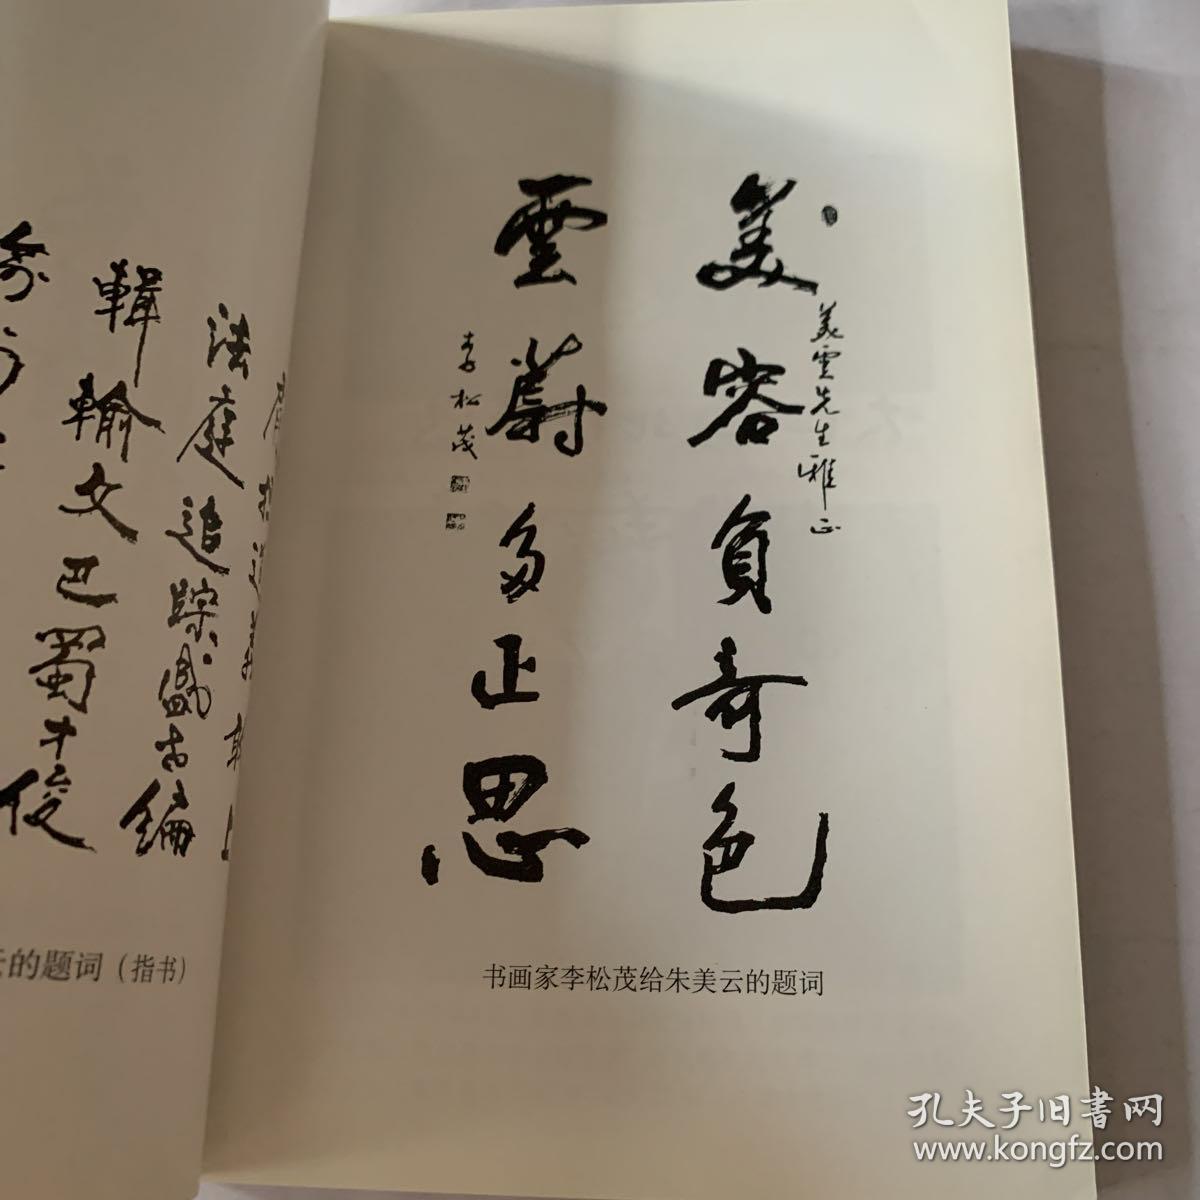 美容負奇色
美雲先生雅正
雲蔚多正思
李松茂
书画家李松茂给朱美云的题词
法庭追踪盛古編
輯輸文巴蜀才俊
云的题词（指书）
孔夫子旧書网
www.kongfz.com